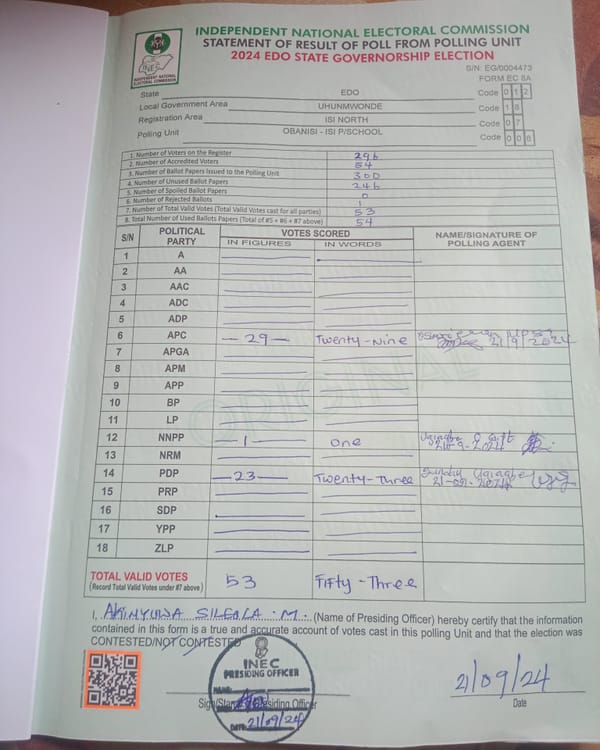 INDEPENDENT NATIONAL ELECTORAL COMMISSION
STATEMENT OF RESULT OF POLL FROM POLLING UNIT
2024 EDO STATE GOVERNORSHIP ELECTION
INEC
INDEPENDENT NATIONAL ELECTORAL COMMISSION
S/N: EG/0004473
FORM EC 8A
State EDO Code 0 1 2
Local Government Area UHUNMWONDE Code 1 8
Registration Area ISI NORTH Code 0 7
Polling Unit OBANISI - ISI P/SCHOOL Code 0 0 8
1. Number of Voters on the Register 296
2. Number of Accredited Voters 54
3. Number of Ballot Papers Issued to the Polling Unit 300
4. Number of Unused Ballot Papers 246
5. Number of Spoiled Ballot Papers 0
6. Number of Rejected Ballots 1
7. Number of Total Valid Votes (Total Valid Votes cast for all parties) 53
8. Total Number of Used Ballot Papers (Total of #5 + #6 + #7 above) 54
S/N POLITICAL PARTY VOTES SCORED NAME/SIGNATURE OF POLLING AGENT
IN FIGURES IN WORDS
1 A
2 AA
3 AAC
4 ADC
5 ADP
6 APC - 29 - Twenty-Nine 21/9/2024
7 APGA
8 APM
9 APP
10 BP
11 LP
12 NNPP - 1 - one
13 NRM
14 PDP - 23 - Twenty-Three Sunday
15 PRP
16 SDP
17 YPP
18 ZLP
ORIGINAL
TOTAL VALID VOTES 53 Fifty-Three
(Record Total Valid Votes under #7 above)
I, M. (Name of Presiding Officer) hereby certify that the information
contained in this form is a true and accurate account of votes cast in this polling Unit and that the election was
CONTESTED/NOT CONTESTED
INEC
PRESIDING OFFICER
NAME:
Sign/Stamp Presiding Officer
DATE: 21/09/24
21/09/24
Date